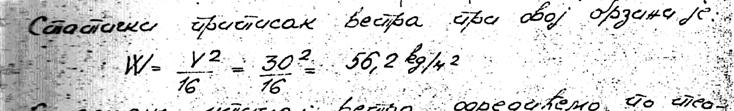 Статички притисак ветра при овој брзини је:
W = V²/16 = 30²/16 = 56,2 kg/м²
ветра одредићемо по